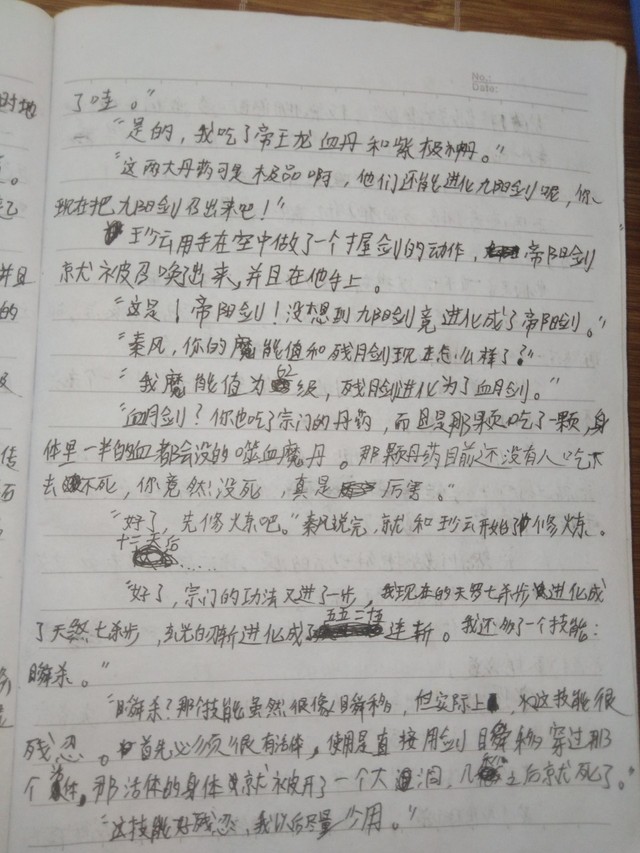 No.:
Date:
了哇。”
“是的，我吃了帝王龙血丹和紫极神丹。”
“这两大丹药可是极品啊，他们还能进化九阳剑呢，你
现在把九阳剑召出来吧！”
玅云用手在空中做了一个握剑的动作，帝阳剑
就被召唤出来，并且在他手上。
“这是！帝阳剑！没想到九阳剑竟进化成了帝阳剑。”
“秦风，你的魔能值和残月剑现在怎么样了？”
“我魔能值为62级，残月剑进化为了血月剑。”
“血月剑？你也吃了宗门的丹药，而且是那颗吃了一颗，身
体里一半的血都会没的噬血魔丹。那颗丹药目前还没有人吃下
去不死，你竟然没死，真是厉害。”
“好了，先修炼吧。”秦风说完，就和玅云开始了修炼。
十三天后......
“好了，宗门的功法又进了一步，我现在的天罗七杀步进化成
了天煞七杀步，斩进化成了五五三倍连斩。我还多了一个技能：
瞬杀。”
“瞬杀？那个技能虽然很像瞬移，但实际上，这技能很
残忍。首先必须很有活体，使用是直接用剑瞬移穿过那
个体，那活体的身体就被开了一个大洞，几之后就死了。”
“这技能好残忍，我以后尽量少用。”
时地
。
并且
的
及
传
面